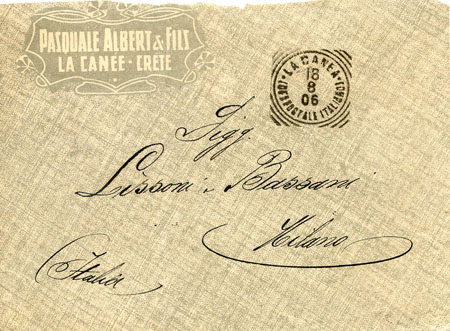 PASQUALE ALBERT & FILS
LA CANÉE - CRÈTE
LA CANEA
18
8
06
UFF. POSTALE ITALIANO
Sigg.
Lissoni e Bassani
Milano
(Italia)